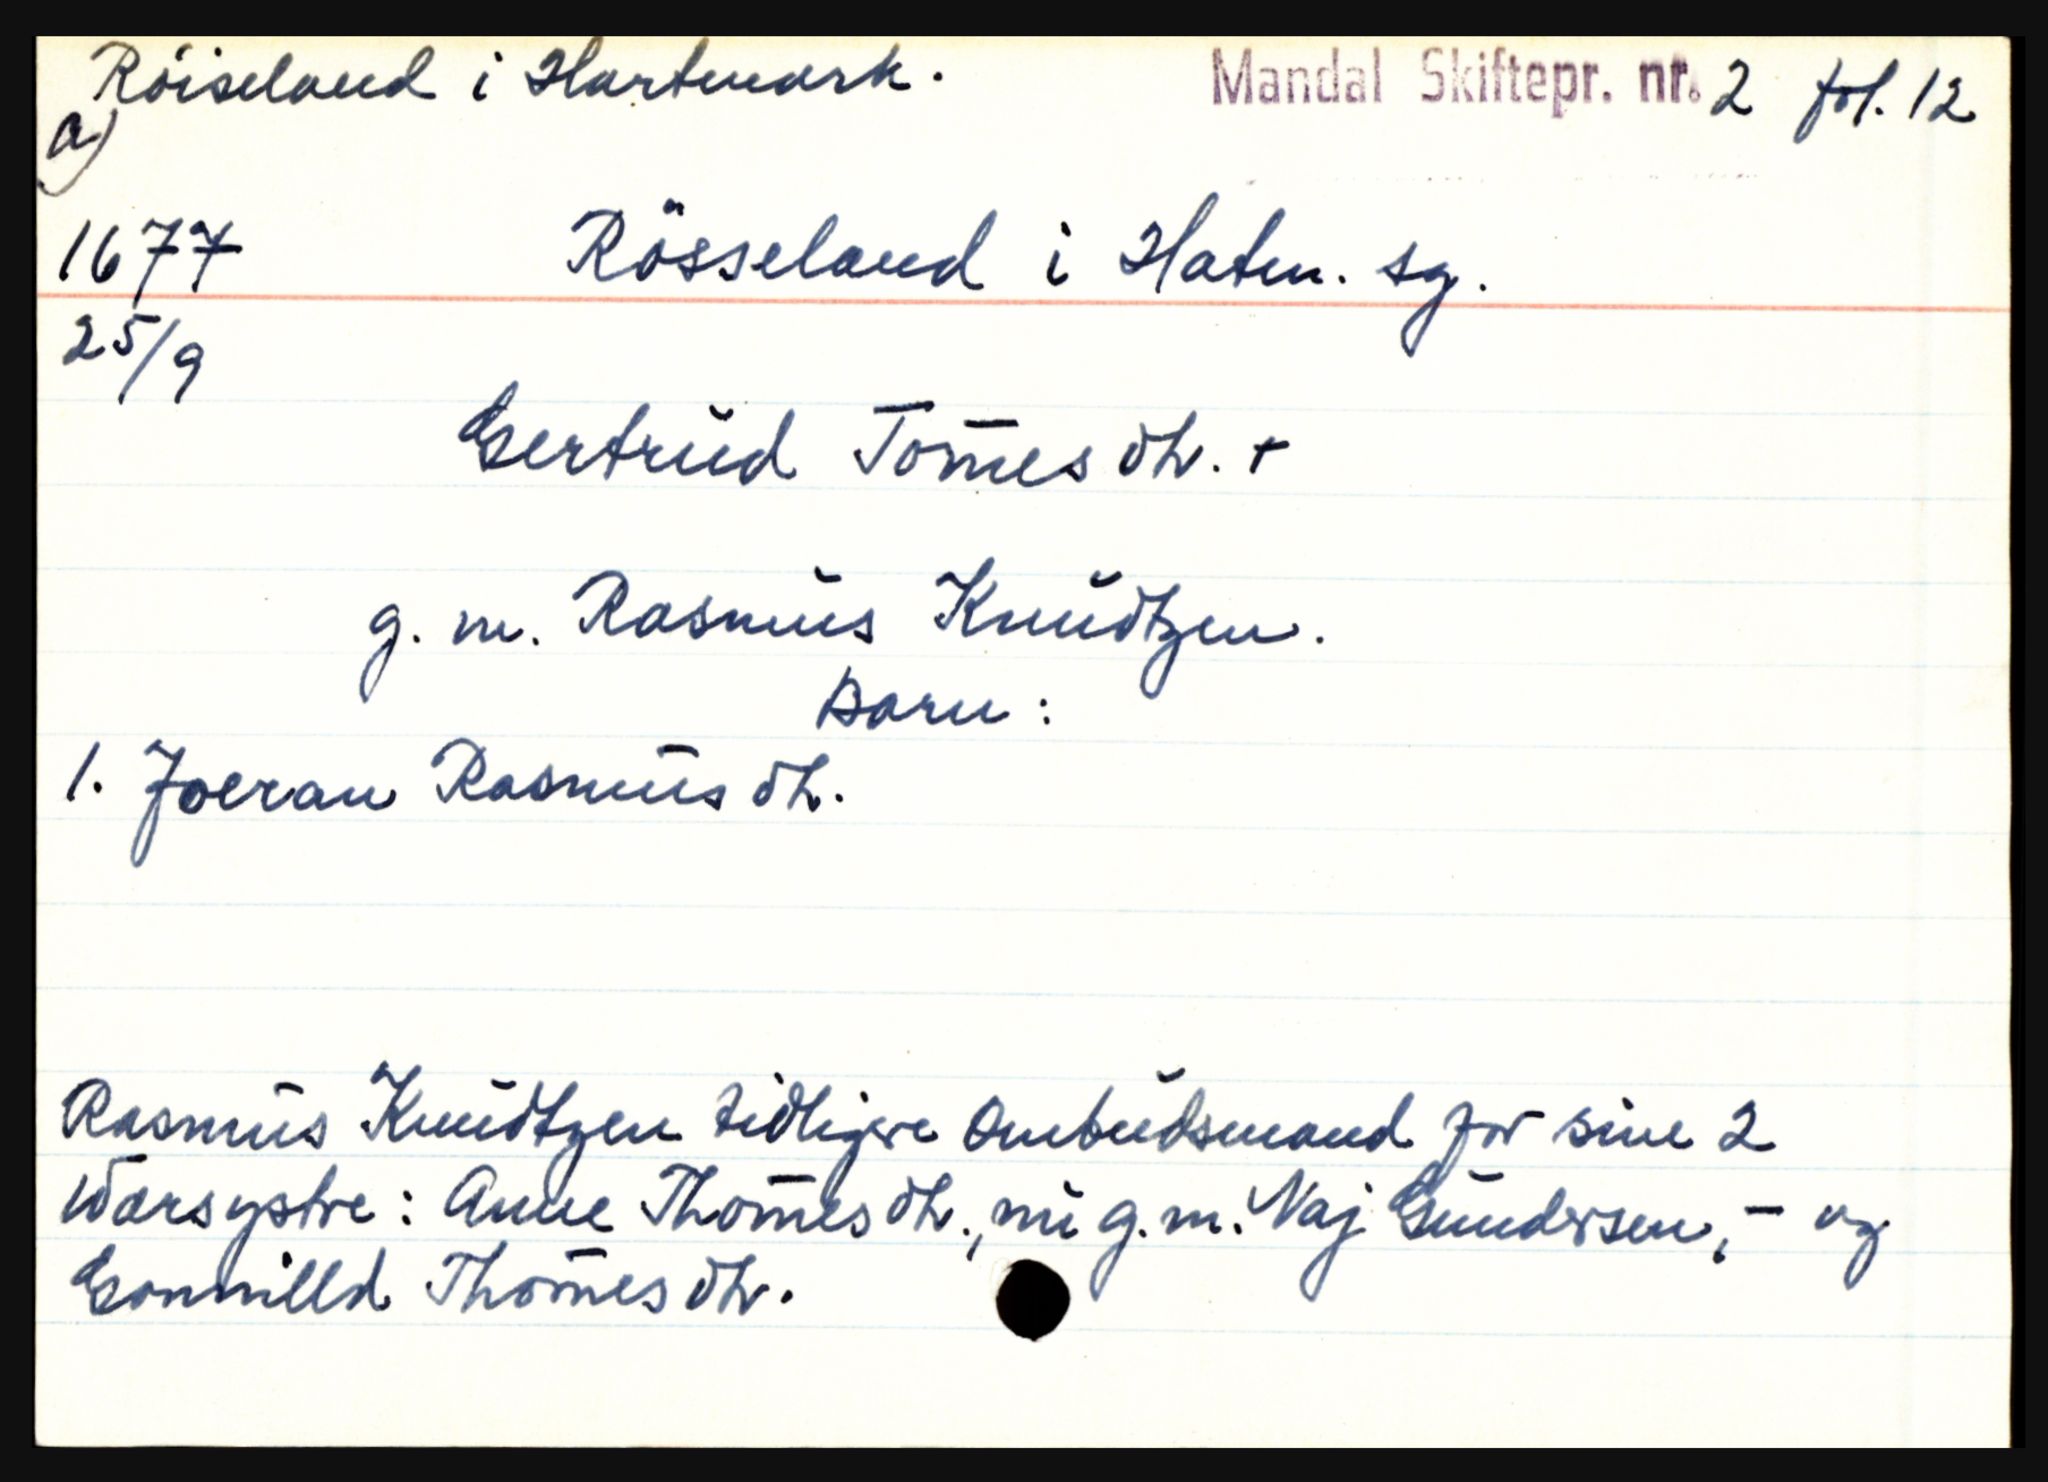 Röiseland i Hartmark. Mandal Skiftepr. nr. 2 fol. 12
a)
1677 Rösseland i Hatm. sg.
25/9
Gertrud Tom̄esdtr. +
g. m. Rasmus Knudtzen.
Barn:
1. Joeran Rasmusdtr.
Rasmus Knudtzen tidligere Ombudsmand for sine 2
Wærsystre: Anne Thom̄esdtr., nu g.m. Naj Gundersen, – og
Gonnilld Thom̄esdtr.